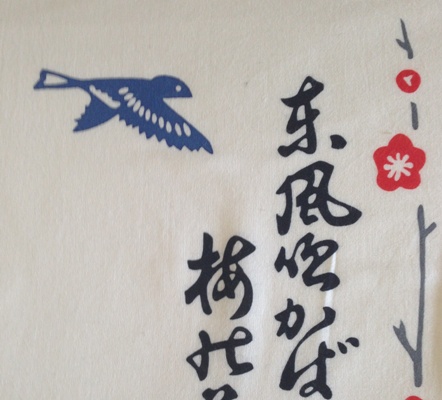 東風吹かば
梅